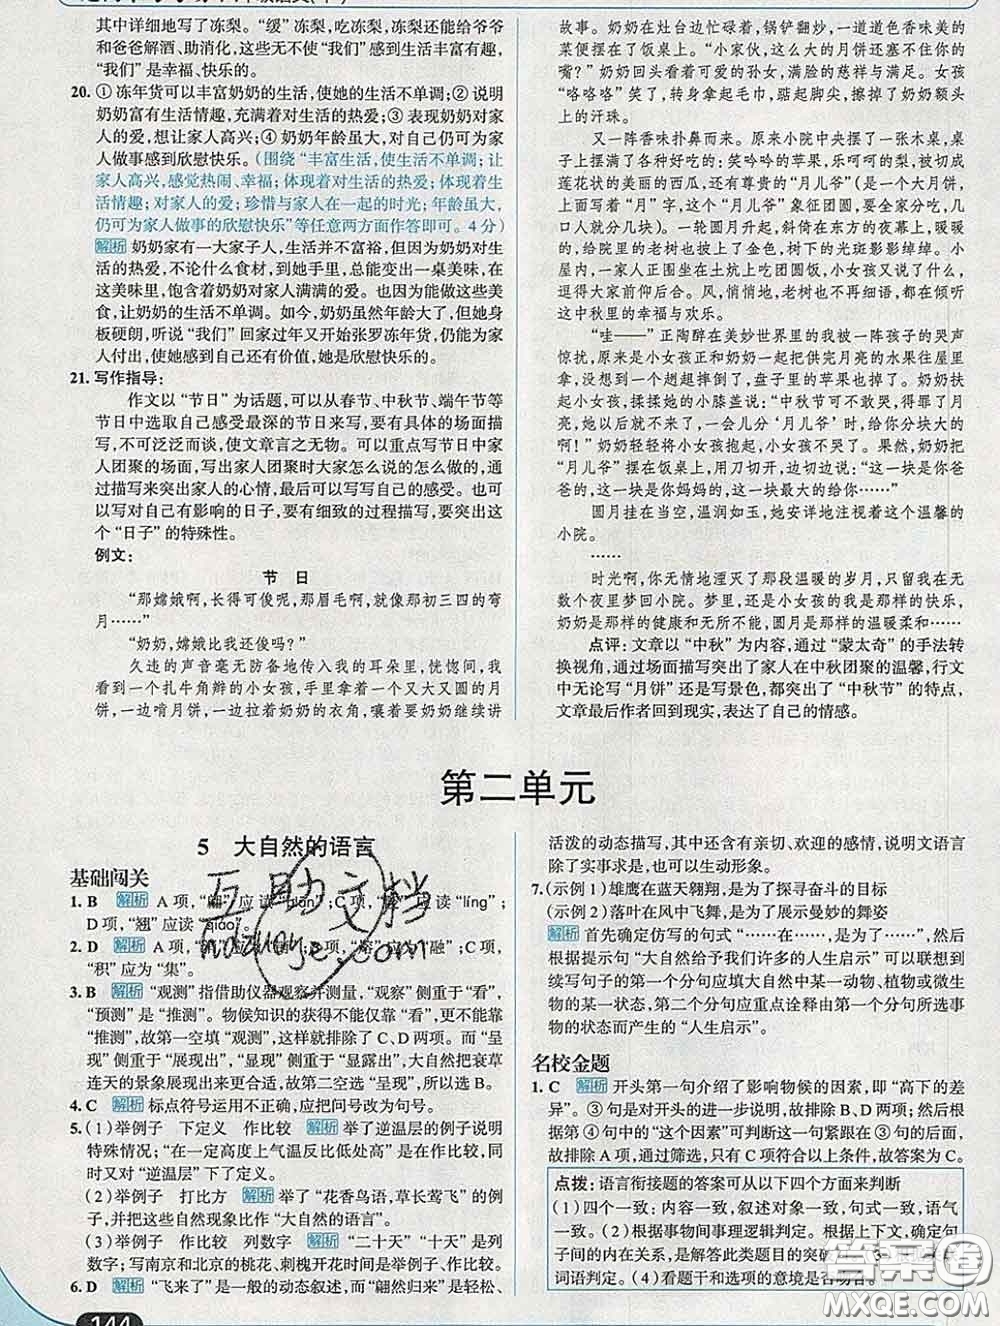 其中详细地写了冻梨。“缓”冻梨,吃冻梨,冻梨还能给爷爷
和爸爸解酒、助消化,这些无不使“我们”感到生活丰富有趣,
“我们”是幸福、快乐的。
20. ①冻年货可以丰富奶奶的生活,使她的生活不单调;②说明
奶奶富有生活情趣,充满着对生活的热爱;③表现奶奶对家
人的爱,想让家人高兴;④奶奶年龄虽大,对自己仍可为家人
做事感到欣慰快乐。(围绕“丰富生活,使生活不单调;让
家人高兴,感觉热闹、幸福;体现着对生活的热爱;体现着生
活情趣;对家人的爱;珍惜与家人在一起的时光;年龄虽大,
仍可为家人做事的欣慰快乐”等任意两方面作答即可。4分)
解析 奶奶家有一大家子人,生活并不富裕,但因为奶奶对生
活的热爱,不论什么食材,到她手里,总能变出一桌美味,在
这美味里,饱含着奶奶对家人满满的爱。也因为能做这些美
食,让奶奶的生活不单调。如今,奶奶虽然年龄大了,但她身
板硬朗,听说“我们”回家过年又开始张罗冻年货,仍能为家
人付出,使她感到还有价值,她是欣慰快乐的。
21. 写作指导:
作文以“节日”为话题,可以从春节、中秋节、端午节等
节日中选取自己感受最深的节日来写,要有具体的场面描
写,不可泛泛而谈,使文章言之无物。可以重点写节日中家
人团聚的场面,写出家人团聚时大家怎么说的怎么做的,通
过描写来突出家人的心情,最后可以写写自己的感受。也可
以写对自己有影响的日子,要有细致的过程描写,要突出这
个“日子”的特殊性。
例文:
节 日
“那嫦娥啊,长得可俊呢,那眉毛啊,就像那初三四的弯
月……”
“奶奶,嫦娥比我还俊吗?”
久违的声音毫无防备地传入我的耳朵里,恍惚间,我
看到一个扎牛角辫的小女孩,手里拿着一个又大又圆的月
饼,一边啃月饼,一边拉着奶奶的衣角,嚷着要奶奶继续讲
故事。
奶奶在灶台边忙碌着,锅铲翻炒,一道道色香味美的
菜便摆在了饭桌上。“小家伙,这么大的月饼还塞不住你的
嘴?”奶奶回头看着可爱的孙女,满脸的慈祥与满足。女孩
“咯咯咯”笑了,转身拿起毛巾,踮起脚尖,擦掉了奶奶额头
上的汗珠。
又一阵香味扑鼻而来。原来小院中央摆了一张木桌,桌
子上摆了各种好吃的:笑吟吟的苹果、乐呵呵的梨,被切成
莲花状的美丽的西瓜,还有尊贵的“月儿爷”(是一个大月饼,
上面刻着“月”字,这个“月儿爷”象征团圆,要全家分吃,几
口人就分几块)。一轮圆月升起,斜倚在东方的夜幕上,暖暖
的,给院里的老树也披上了金色,树下的光斑影影绰绰。小
屋内,一家人正围坐在土炕上吃团圆饭,小女孩又说了什么,
逗得大家前仰后合。风,悄悄的,老树也不再细语,都在倾听
这中秋里的幸福与欢乐。
“哇——”正陶醉在美妙世界里的我被一阵孩子的哭声
惊扰,原来是小女孩正和奶奶一起把供完月亮的水果往屋里
拿,没想到一个趔趄摔倒了,盘子里的苹果滚了一地。奶奶扶
起小女孩,揉揉她的小膝盖说:“中秋节可不敢哭,得罪了月
亮,来年你就走背运了,一会儿分‘月儿爷’时,就给你块大的
啊!”奶奶轻轻将小女孩抱起,小女孩不哭了。果然,奶奶把
“月儿爷”摆在饭桌上,用刀切开,边切边说:“这一块是你爸
爸的,这一块是你妈妈的,这块最大的给你……”
圆月挂在当空,温润如玉,她安详地注视着这个温馨的
小院。
……
时光啊,你无情地湮灭了那段温暖的岁月,只留我在无
数个夜里梦回小院。梦里,还是小女孩的我是那样的快乐,
奶奶是那样的健康和无所不能,圆月是那样的温柔祥和……
点评:文章以“中秋”为内容,通过“蒙太奇”的手法转
换视角,通过场面描写突出了家人在中秋团聚的温馨,行文
中无论写“月饼”还是写景色,都突出了“中秋节”的特点,
文章最后作者回到现实,表达了自己的情感。
第二单元
5 大自然的语言
基础闯关
1. B 解析 A项,
D项,“翘”应读“qiáo”。
2. D 解析 A项,
“积”应为“集”。
3. B 解析 “观测”指借助仪器观察并测量,“观察”侧重于“看”,
“预测”是“推测”。物候知识的获得不能仅靠“看”,更不能靠
“推测”,故第一空填“观测”,这样就排除了C、D两项。而“呈
现”侧重于“展现出”,“显现”侧重于“显露出”,大自然把衰草
连天的景象展现出来更合适,故第二空选“呈现”,所以选B。
4. C 解析 标点符号运用不正确,应把问号改为句号。
5. (1)举例子 下定义 作比较 解析 举了逆温层的例子说明
特殊情况;“在一定高度上气温反比低处高”是在作比较,同
时又对“逆温层”下了定义。
(2)举例子 打比方 解析 举了“花香鸟语,草长莺飞”的例
子,并把这些自然现象比作“大自然的语言”。
(3)举例子 作比较 列数字 解析 “二十天”“十天”是列
数字;写南京和北京的桃花、刺槐开花时间是举例子、作比较。
6. D 解析 “飞来了”是一般的动态叙述,而“翩然归来”是轻松、
活泼的动态描写,其中还含有亲切、欢迎的感情,说明文语言
除了实事求是,也可以生动形象。
7. (示例1)雄鹰在蓝天翱翔,是为了探寻奋斗的目标
(示例2)落叶在风中飞舞,是为了展示曼妙的舞姿
解析 首先确定仿写的句式“……在……,是为了……”,然后
根据提示句“大自然给予我们许多的人生启示”可以联想到
续写句子的第一个分句应填大自然中某一动物、植物或微生
物的某一状态,第二个分句应重点诠释由第一个分句所选事
物的状态而产生的“人生启示”。
名校金题
1. C 解析 开头第一句介绍了影响物候的因素,即“高下的差
异”。③句是对开头的进一步说明,故排除B、D两项。然后
根据第④句中的“这个因素”可判断这一句紧跟在③句的后面,
故排除A项,通过筛选,只有C项符合以上条件,故答案为C。
点拨:语言衔接题的答案可从以下四个方面来判断
(1)四个一致:内容一致,叙述对象一致,句式一致,语气
一致。(2)根据事物间事理逻辑判定。根据上下文,确定句
子间的内在关系,是解答此类题目的突破
词语判定。(4)看题干和选项的意境是否吻合。
144
互助文档
hdzuoye.com
答案卷
MXQE.COM